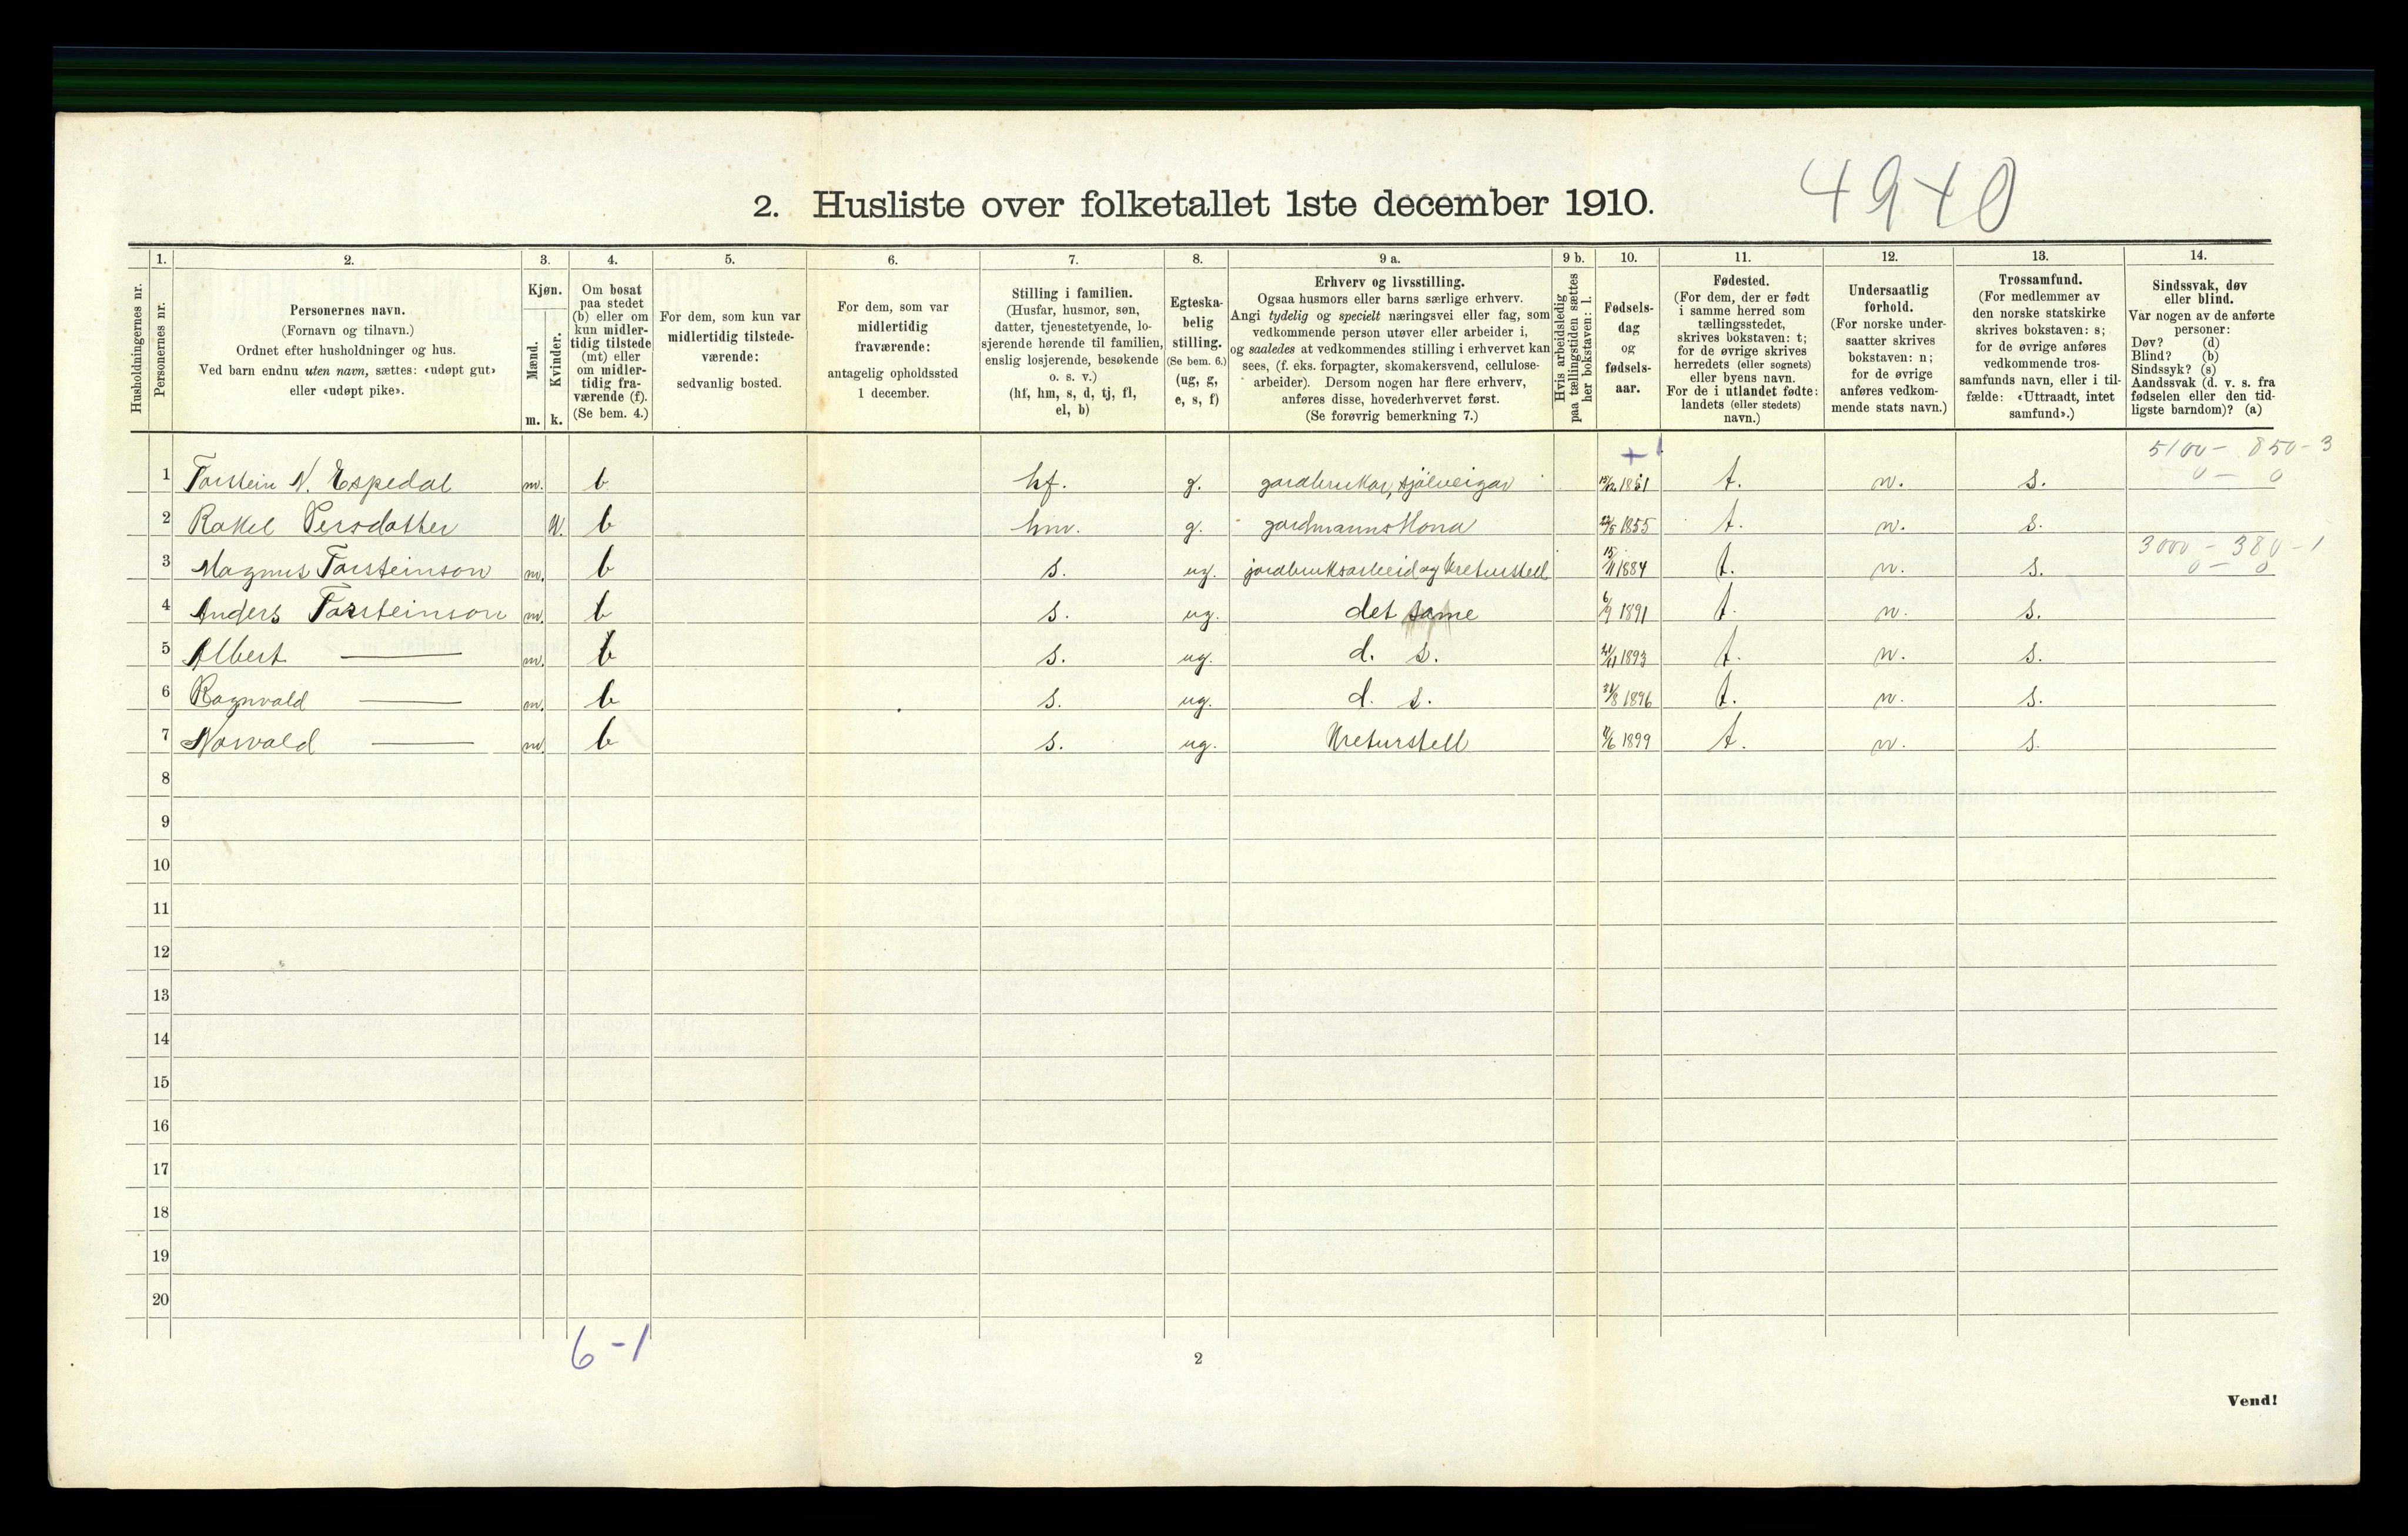 4940
2. Husliste over folketallet 1ste december 1910.
Husholdningernes nr.
1. Personernes nr.
2. Personernes navn.
(Fornavn og tilnavn.)
Ordnet efter husholdninger og hus.
Ved barn endnu uten navn, sættes: «udøpt gut»
eller «udøpt pike».
3. Kjøn.
Mænd. m.
Kvinder. k.
4. Om bosat
paa stedet
(b) eller om
kun midler-
tidig tilstede
(mt) eller
om midler-
tidig fra-
værende (f).
(Se bem. 4.)
5. For dem, som kun var
midlertidig tilstede-
værende:
sedvanlig bosted.
6. For dem, som var
midlertidig
fraværende:
antagelig opholdssted
1 december.
7. Stilling i familien.
(Husfar, husmor, søn,
datter, tjenestetyende, lo-
sjerende hørende til familien,
enslig losjerende, besøkende
o. s. v.)
(hf, hm, s, d, tj, fl,
el, b)
8. Egteska-
belig
stilling.
(Se bem. 6.)
(ug, g,
e, s, f)
9 a. Erhverv og livsstilling.
Ogsaa husmors eller barns særlige erhverv.
Angi tydelig og specielt næringsvei eller fag, som
vedkommende person utøver eller arbeider i,
og saaledes at vedkommendes stilling i erhvervet kan
sees, (f. eks. forpagter, skomakersvend, cellulose-
arbeider). Dersom nogen har flere erhverv,
anføres disse, hovederhvervet først.
(Se forøvrig bemerkning 7.)
9 b. Hvis arbeidsledig
paa tællingstiden sættes
her bokstaven: l.
10. Fødsels-
dag
og
fødsels-
aar.
11. Fødested.
(For dem, der er født
i samme herred som
tællingsstedet,
skrives bokstaven: t;
for de øvrige skrives
herredets (eller sognets)
eller byens navn.
For de i utlandet fødte:
landets (eller stedets)
navn.)
12. Undersaatlig
forhold.
(For norske under-
saatter skrives
bokstaven: n;
for de øvrige
anføres vedkom-
mende stats navn.)
13. Trossamfund.
(For medlemmer av
den norske statskirke
skrives bokstaven: s;
for de øvrige anføres
vedkommende tros-
samfunds navn, eller i til-
fælde: «Uttraadt, intet
samfund».)
14. Sindssvak, døv
eller blind.
Var nogen av de anførte
personer:
Døv? (d)
Blind? (b)
Sindssyk? (s)
Aandssvak (d. v. s. fra
fødselen eller den tid-
ligste barndom)? (a)
+ 1
5100 - 850 - 3
0 - 0
1 Torstein N. Espedal m. b hf. g. gardbrukar, sjølveigar 15/2 1851 t. n. s.
2 Rakel Persdatter k. b hm. g. gardmannskona 22/5 1855 t. n. s.
3000 - 380 - 1
0 - 0
3 Magnus Torsteinson m. b s. ug. jordbruksarbeid og kreturstell 15/11 1884 t. n. s.
4 Anders Torsteinson m. b s. ug. det same 6/9 1891 t. n. s.
5 Albert — m. b s. ug. d. s. 21/11 1893 t. n. s.
6 Ragnvald — m. b s. ug. d. s. 31/8 1896 t. n. s.
7 Norvald — m. b s. ug. Kreturstell 11/6 1899 t. n. s.
8
9
10
11
12
13
14
15
16
17
18
19
20
6-1
2
Vend!